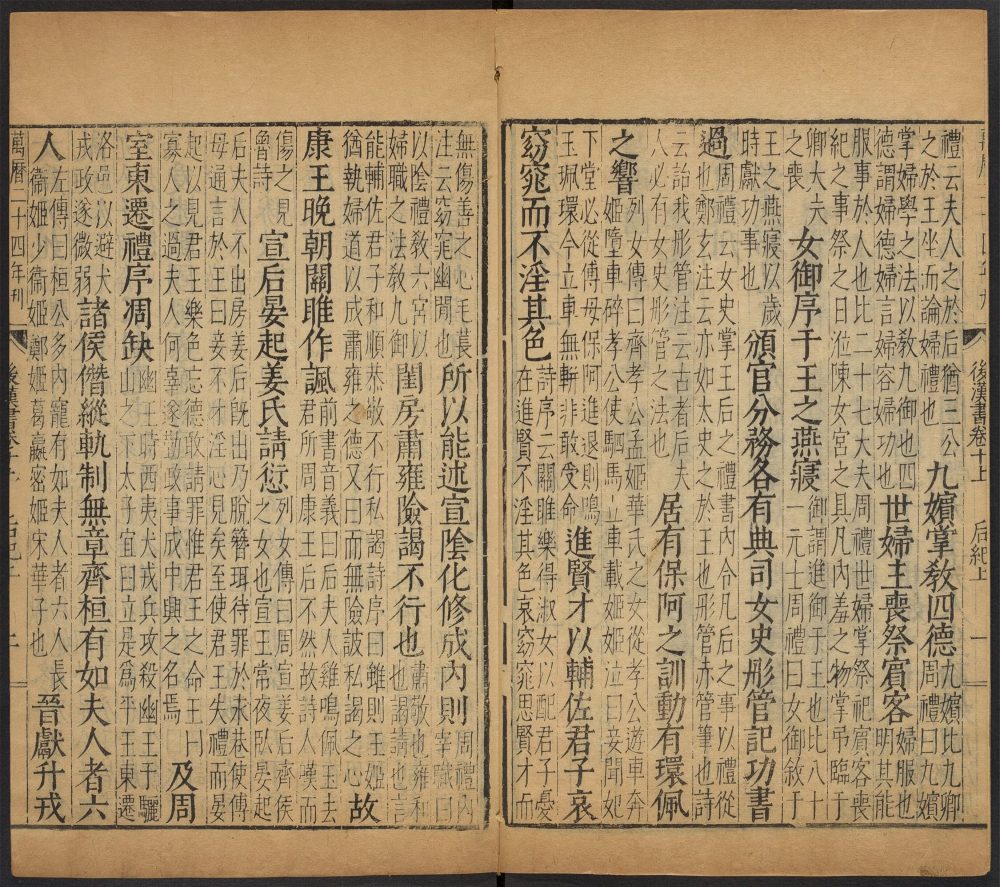 後漢書卷十上 后紀上 一
禮云夫人之於后猶三公
之於王坐而論婦禮也
九嬪掌教四德
九嬪比九卿
周禮曰九嬪
掌婦學之法以教九御也四
德謂婦德婦言婦容婦功也
世婦主喪祭賓客
婦服也
明其能
服事於人也比二十七大夫周禮世婦掌祭祀賓客喪
紀之事祭之日涖陳女宮之具凡內羞之物掌弔臨于
卿大夫
之喪
女御序于王之燕寢
御謂進御于王也比八十
一元士周禮曰女御敘于
王之燕寢以歲
時獻功事也
頒官分務各有典司女史彤管記功書
過
周禮云女史掌王后之禮書內令凡后之事以禮從
也鄭玄注云亦如太史之於王也彤管赤管筆也詩
云詒我彤管注云古者后夫
人必有女史彤管之法也
居有保阿之訓動有環佩
之響
列女傳曰齊孝公孟姬華氏之女從孝公遊車奔
姬墮車碎孝公使駟馬立車載姬姬泣曰妾聞妃
下堂必從傅母保阿進退則鳴
玉珮環今立車無軿非敢受命
進賢才以輔佐君子哀
窈窕而不淫其色
詩序云關雎樂得淑女以配君子憂
在進賢不淫其色哀窈窕思賢才而
無傷善之心毛萇
注云窈窕幽閒也
所以能述宣陰化修成内則
周禮內
宰職曰
以陰禮教六宮又以
婦職之法教九御
閨房肅雍險謁不行也
肅敬也雍和
也謁請也言
能輔佐君子和順恭敬不行私謁詩序曰雖則王姬
猶執婦道以成肅雍之德又曰而無險詖私謁之心
故
康王晚朝關雎作諷
前書音義曰后夫人雞鳴佩玉去
君所周康王后不然故詩人嘆而
傷之見
魯詩
宣后晏起姜氏請愆
列女傳曰周宣姜后齊侯
之女也宣王常夜臥晏起
后夫人不出房姜后既出乃脫簪珥待罪於永巷使傅
母通言於王曰妾不才淫心見矣至使君王失禮而晏
起以見君王樂色忘德敢請罪惟君王之命王曰
寡人之過夫人何辜遂勤政事成中興之名焉
及周
室東遷禮序凋缺
幽王時西夷犬戎兵攻殺幽王于驪
山之下太子宜臼立是爲平王東遷
洛邑以避犬
戎政遂微弱
諸侯僭縱軌制無章齊桓有如夫人者六
人
左傳曰桓公多內寵有如夫人者六人長
衛姬少衛姬鄭姬葛嬴密姬宋華子也
晉獻升戎
萬曆二十四年刊